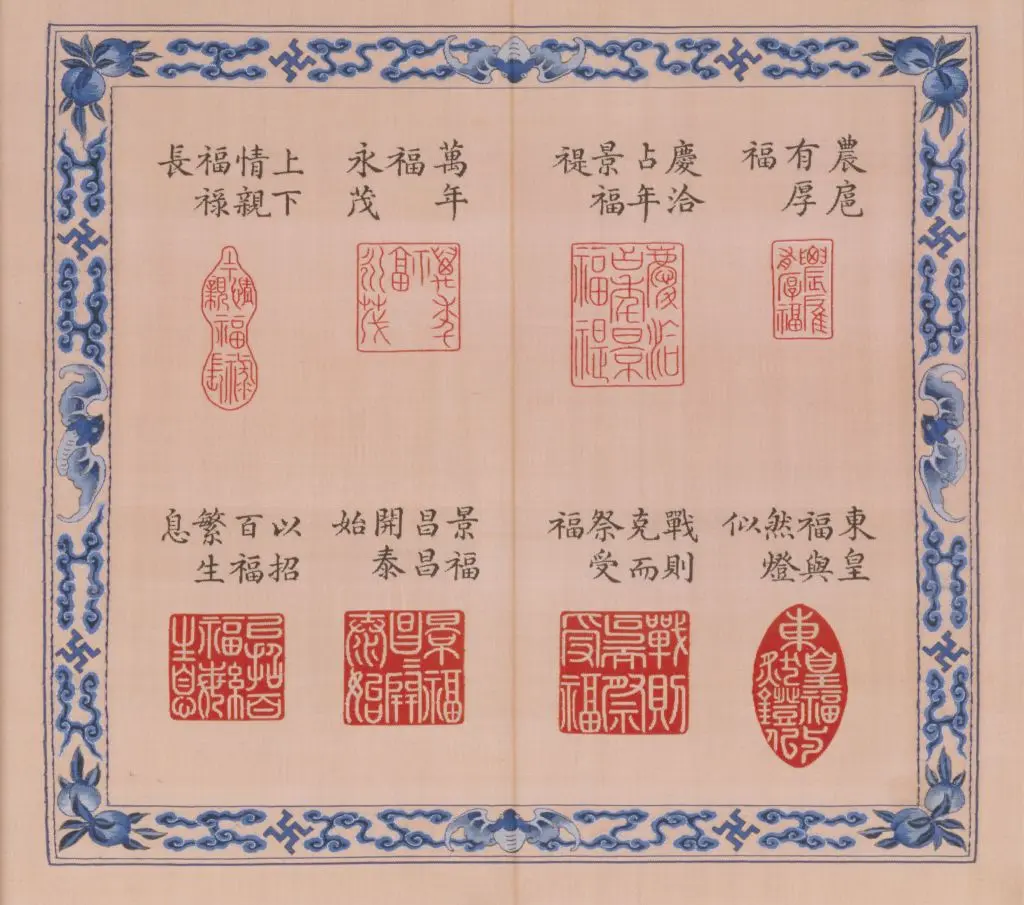 農扈
有厚
福
慶洽
占年
景福
禔
萬年
福
永茂
上下
情親
福祿
長
東皇
福與
然燈
似
戰則
克而
祭受
福
景福
昌昌
開泰
始
以招
百福
繁生
息